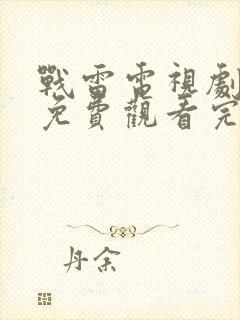 戰雷電視劇
免費觀看完
丹余